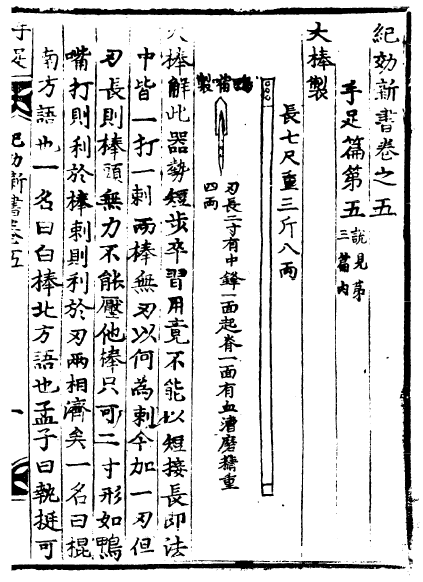 紀効新書卷之五
手足篇第五說見第三篇內
大棒製
長七尺重三斤八兩
鴨嘴製
刃長二寸有中鋒一面起脊一面有血漕磨精重
四兩
大棒解此器勢短步卒習用竟不能以短接長即法
中皆一打一刺兩棒無刃以何為刺今加一刃但
刃長則棒頭無力不能壓他棒只可二寸形如鴨
嘴打則利於棒刺則利於刃兩相濟矣一名曰棍
南方語也一名曰白棒北方語也孟子曰執挺可
手足
紀効新書卷五
一